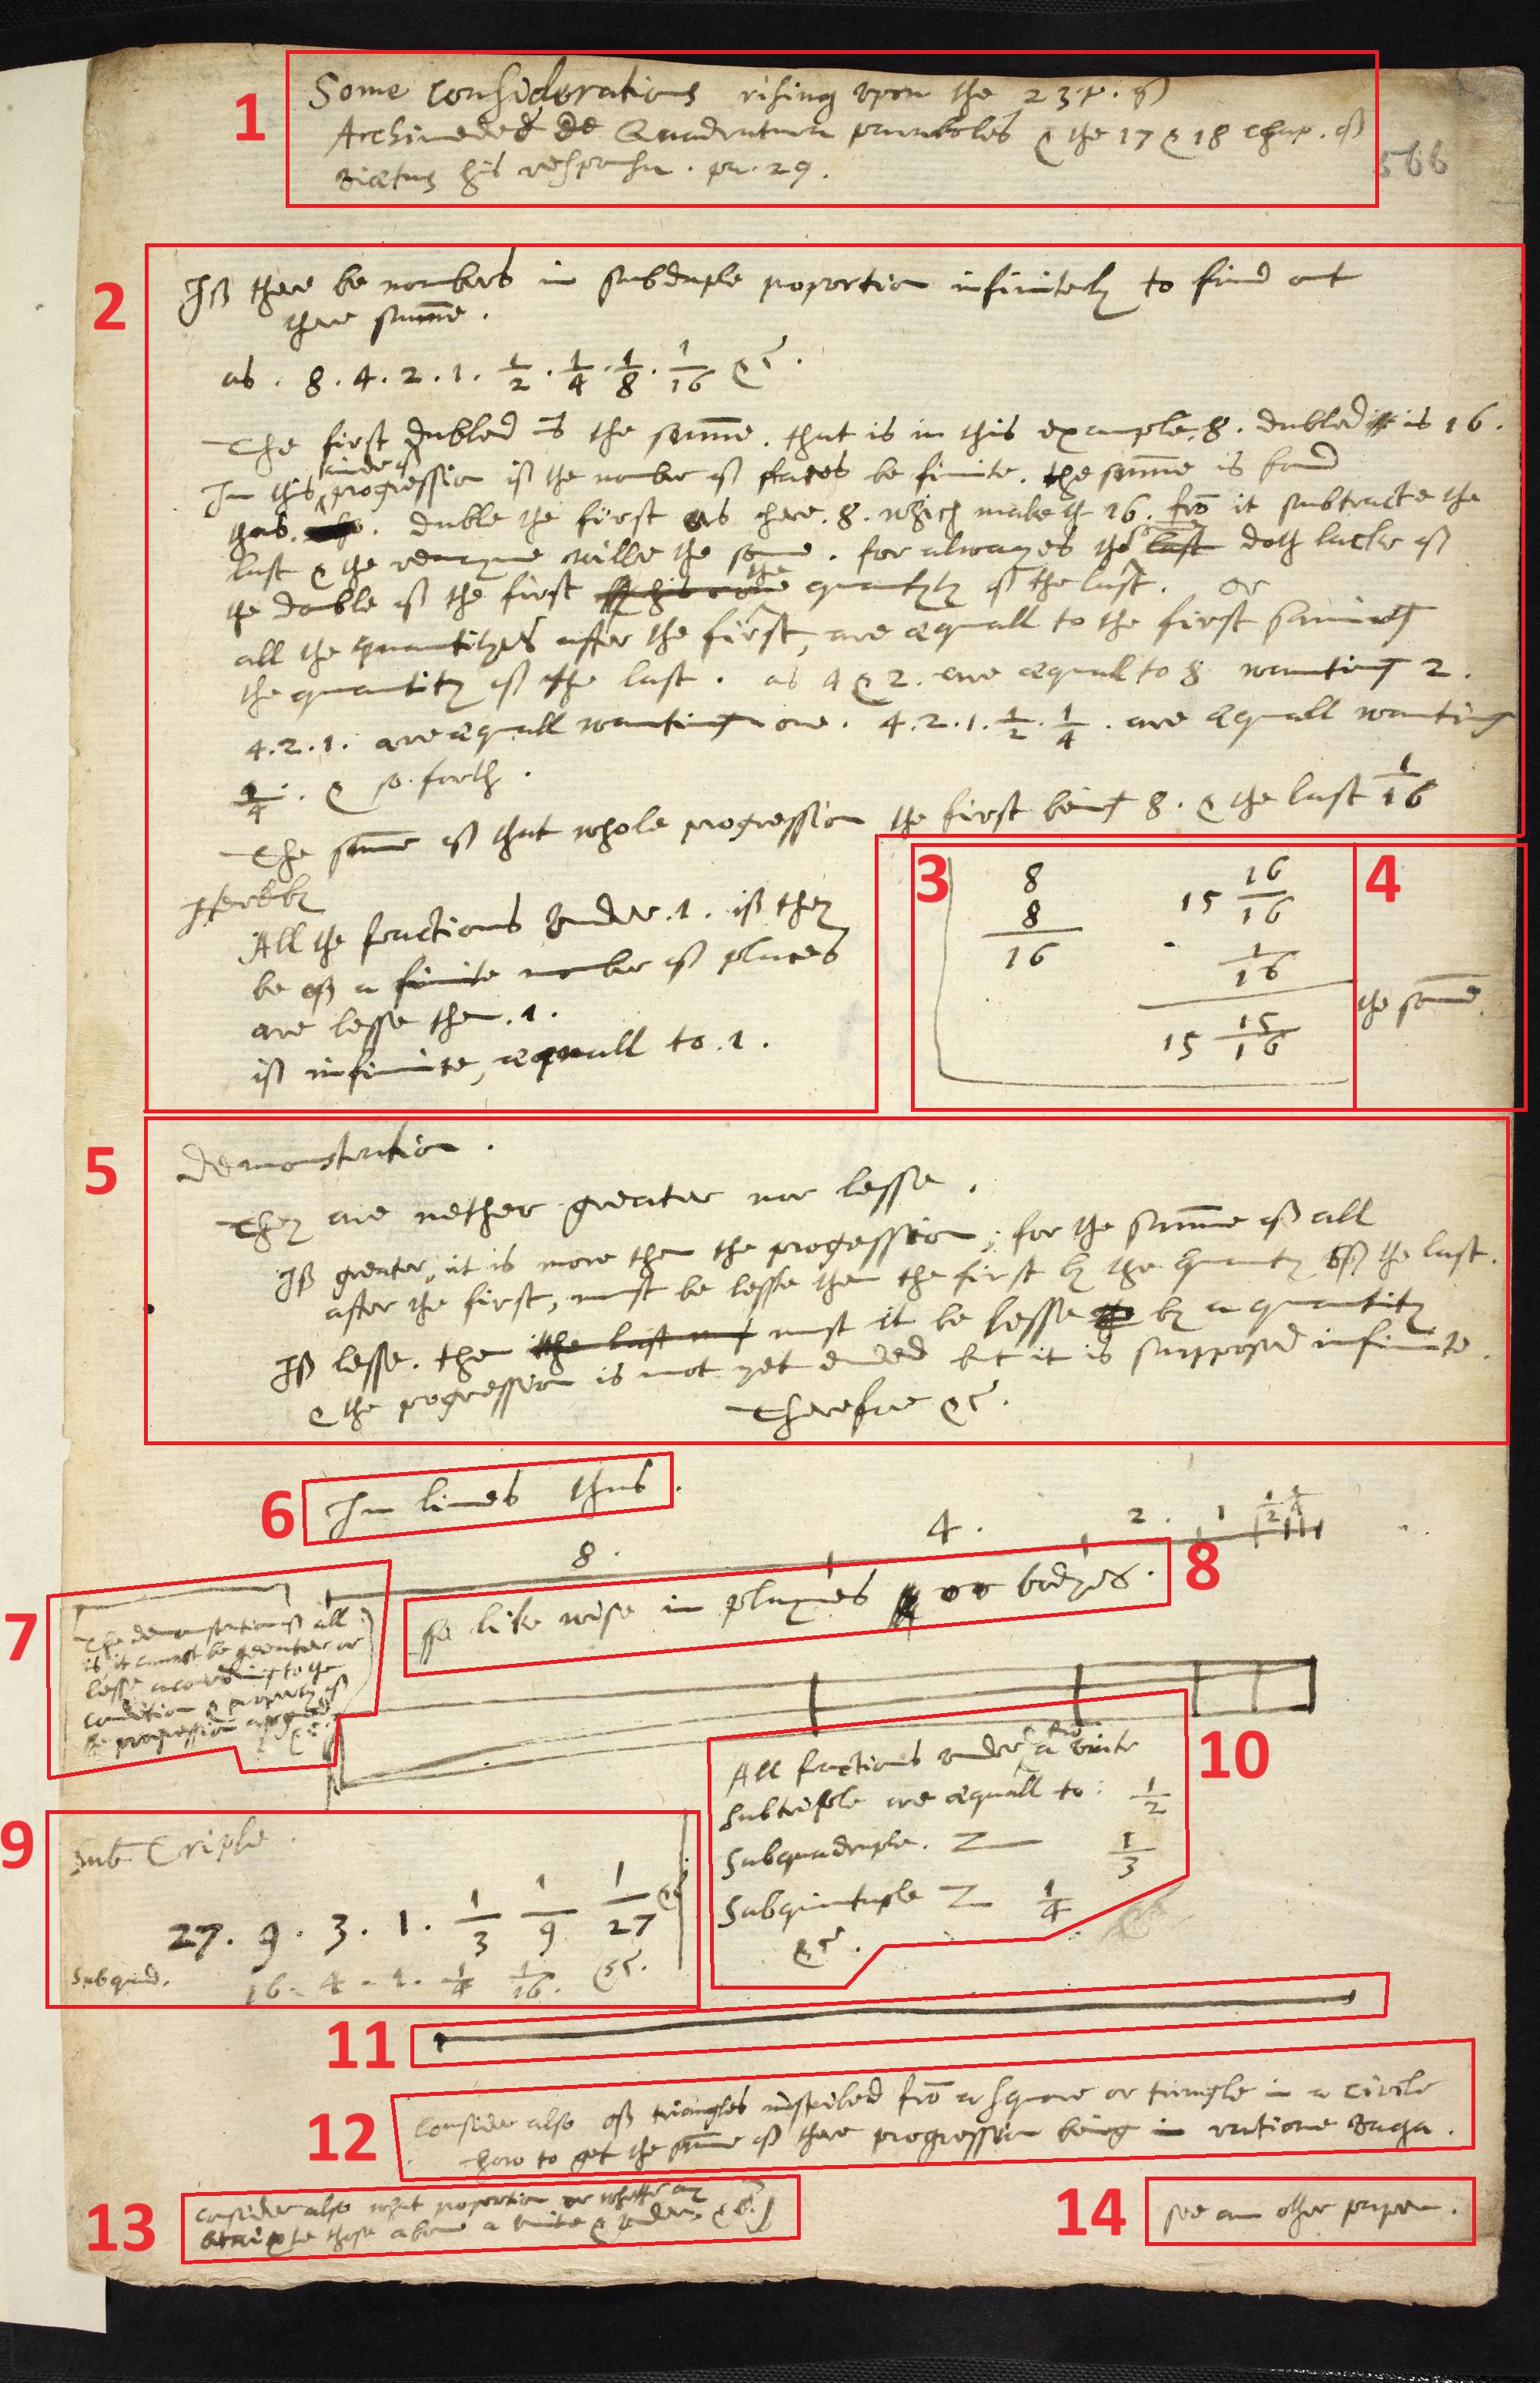 1
Some considerations rising upon the 23.p. of
Archimedes de Quadratura paraboles & the 17 & 18 chap. of
Vietas his responsa. pa. 29.
566
2
If there be nombers in subduple proportion infinitely to find out
there summe.
as. 8. 4. 2. 1. 1/2. 1/4. 1/8. 1/16 &c.
The first dubled is the summe. that is in this example. 8. dubled is 16.
In this kinde of progression if the nomber of places be finite. the summe is found
thus. duble the first as here. 8. which maketh 16. frō it subtracte the
last & the remayne wilbe the some. for alwayes the last doth lacke of
the double of the first the quantyty of the last. or
all the quantityes after the first, are æquall to the first saving
the quantity of the last. as 4 & 2. are æquall to 8 wanting 2.
4. 2. 1. are æquall wanting one. 4. 2. 1. 1/2. 1/4. are æquall wanting
1/4. & so forth.
The summe of that whole progression the first being 8. & the last 1/16
3
8
8
16
15 16/16
1/16
15 15/16
4
the summe.
Hereby
All the fractions under. 1. if they
be of a finite nomber of places
are lesse then. 1.
if infinite, æquall to. 1.
5
Demonstration.
They are nether greater nor lesse.
If greater, it is more then the progession; for the summe of all
after the first, must be lesse then the first by the quantity of the last.
If lesse. then the last must must it be lesse by a quantity
& the progression is not yet ended but it is supposed infinite.
Therefore &c.
6
In lines thus.
8. 4. 2. 1 1/2 1/4
7
The demonstration of all
is, it cannot be greater or
lesse according to the
condition & property of
the progression
&c.
8
So likewise in playnes or bodyes.
9
Sub Triple.
27. 9. 3. 1. 1/3 1/9 1/27 &c
Subquad. 16. 4. 1. 1/4 1/16. &c.
10
All fractions under a unite
Subtriple are æquall to: 1/2
Subquadruple. 1/3
Subquintuple 1/4
&c.
11
12
Consider also of triangles inscribed frō a square or triangle in a circle
how to get the summe of there progression being in ratione vaga.
13
Consider also what proportion or whether any
those above a unite & under. &c.
14
see an other paper.